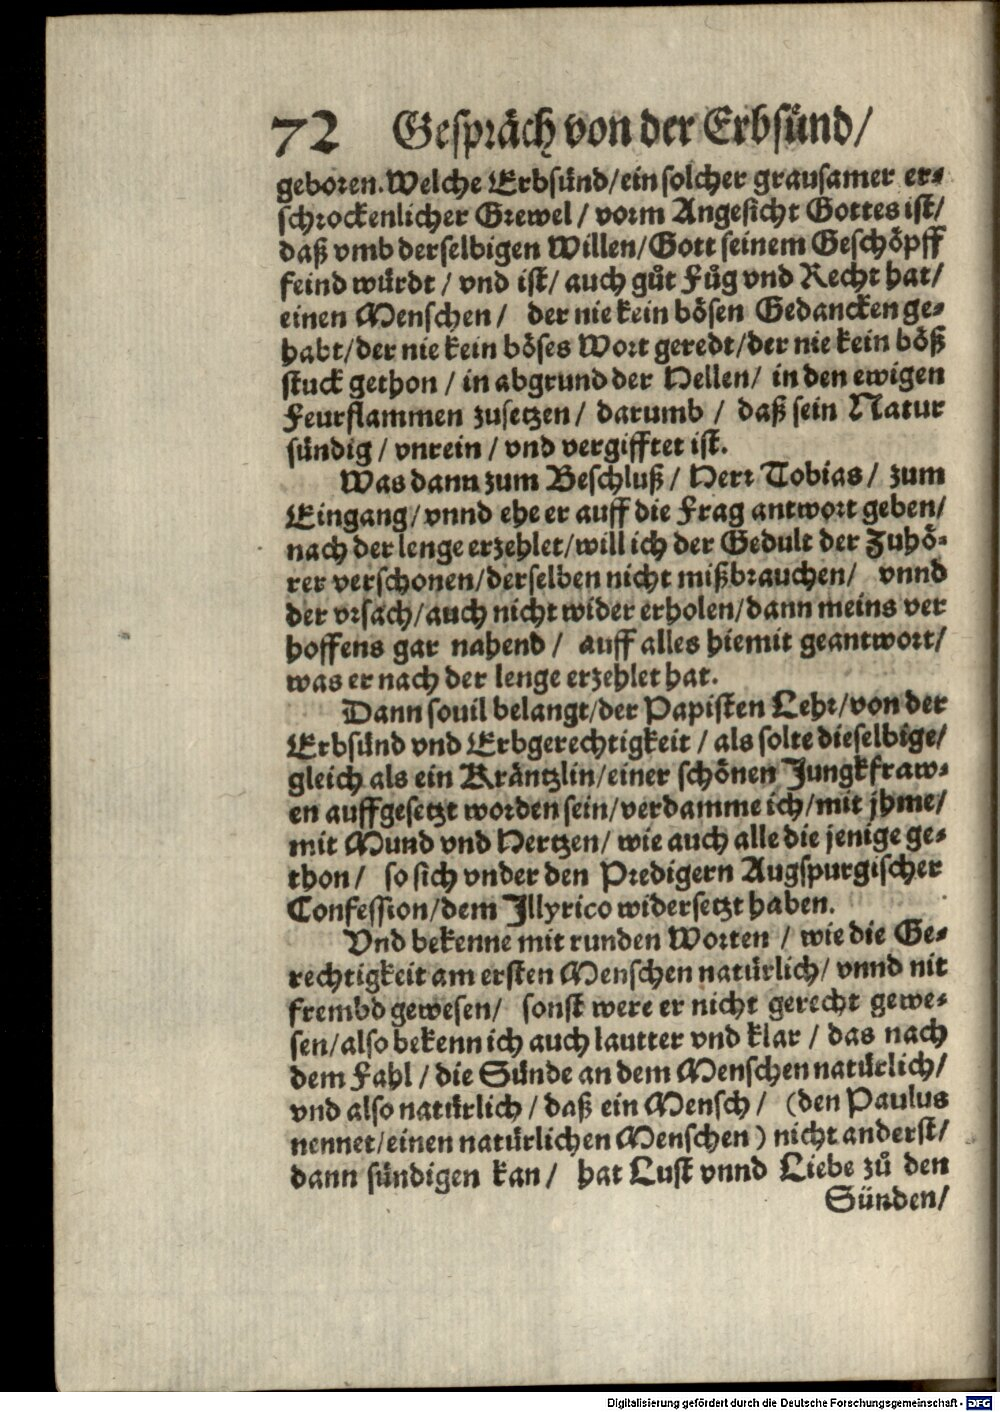 72 Gespräch von der Erbsünd/
geboren. Welche Erbsünd/ein solcher grausamer er⸗
schrockenlicher Grewel / vorm Angesicht Gottes ist/
daß vmb derselbigen Willen/Gott seinem Geschöpff
feind würdt / vnd ist/ auch gůt Fůg vnd Recht hat/
einen Menschen / der nie kein bösen Gedancken ge⸗
habt/der nie kein böses Wort geredt/der nie kein böß
stuck gethon / in abgrund der Hellen/ in den ewigen
Feurflammen zusetzen / darumb / daß sein Natur
sündig / vnrein / vnd vergifftet ist.
Was dann zum Beschluß / Herr Tobias / zum
Eingang/vnnd ehe er auff die Frag antwort geben/
nach der lenge erzehlet/will ich der Gedult der Zuhö⸗
rer verschonen/derselben nicht mißbrauchen/ vnnd
der vrsach/auch nicht wider erholen/dann meins ver
hoffens gar nahend / auff alles hiemit geantwort/
was er nach der lenge erzehlet hat.
Dann souil belangt/der Papisten Lehr/von der
Erbsünd vnd Erbgerechtigkeit / als solte dieselbige/
gleich als ein Kräntzlin/einer schönen Jungkfraw⸗
en auffgesetzt worden sein/verdamme ich/mit jhme/
mit Mund vnd Hertzen/ wie auch alle die jenige ge⸗
thon / so sich vnder den Predigern Augspurgischer
Confession/dem Jllyrico widersetzt haben.
Vnd bekenne mit runden Worten / wie die Ge⸗
rechtigkeit am ersten Menschen natürlich/ vnnd nit
frembd gewesen/ sonst were er nicht gerecht gewe⸗
sen/also bekenn ich auch lautter vnd klar / das nach
dem Fahl / die Sünde an dem Menschen natürlich/
vnd also natürlich / daß ein Mensch / (den Paulus
nennet/einen natürlichen Menschen) nicht anderst/
dann sündigen kan/ hat Lust vnnd Liebe zů den
Sünden/
Digitalisierung gefördert durch die Deutsche Forschungsgemeinschaft - DFG